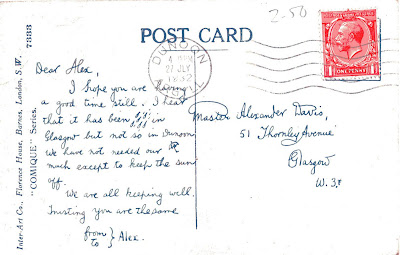 2.50
POST CARD
DUNOON
ARGYLL
ONE PENNY
Dear Alex,
I hope you are having
a good time still. I hear
that it has been in
Glasgow but not so in Dunoon
we have not needed our
much except to keep the sun
off.
We are all keeping well.
Trusting you are the same
from } Alex.
to
Master Alexander Davis,
51 Thornley Avenue
Glasgow
W.3.
Inter-Art Co., Florence House, Barnes, London, S.W.
"COMIQUE" Series. 7333